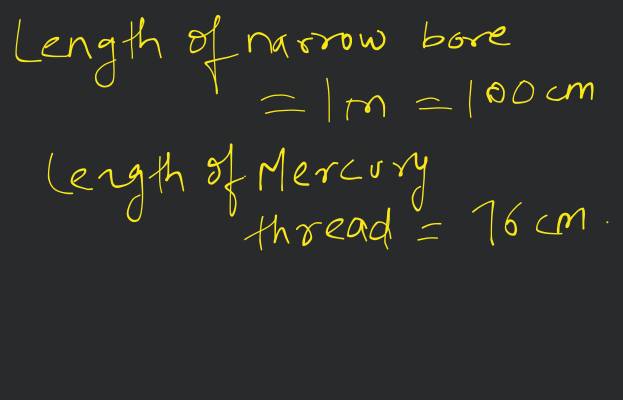 Length of narrow bore
= 1m = 100 cm
Length of Mercury
thread = 76 cm.